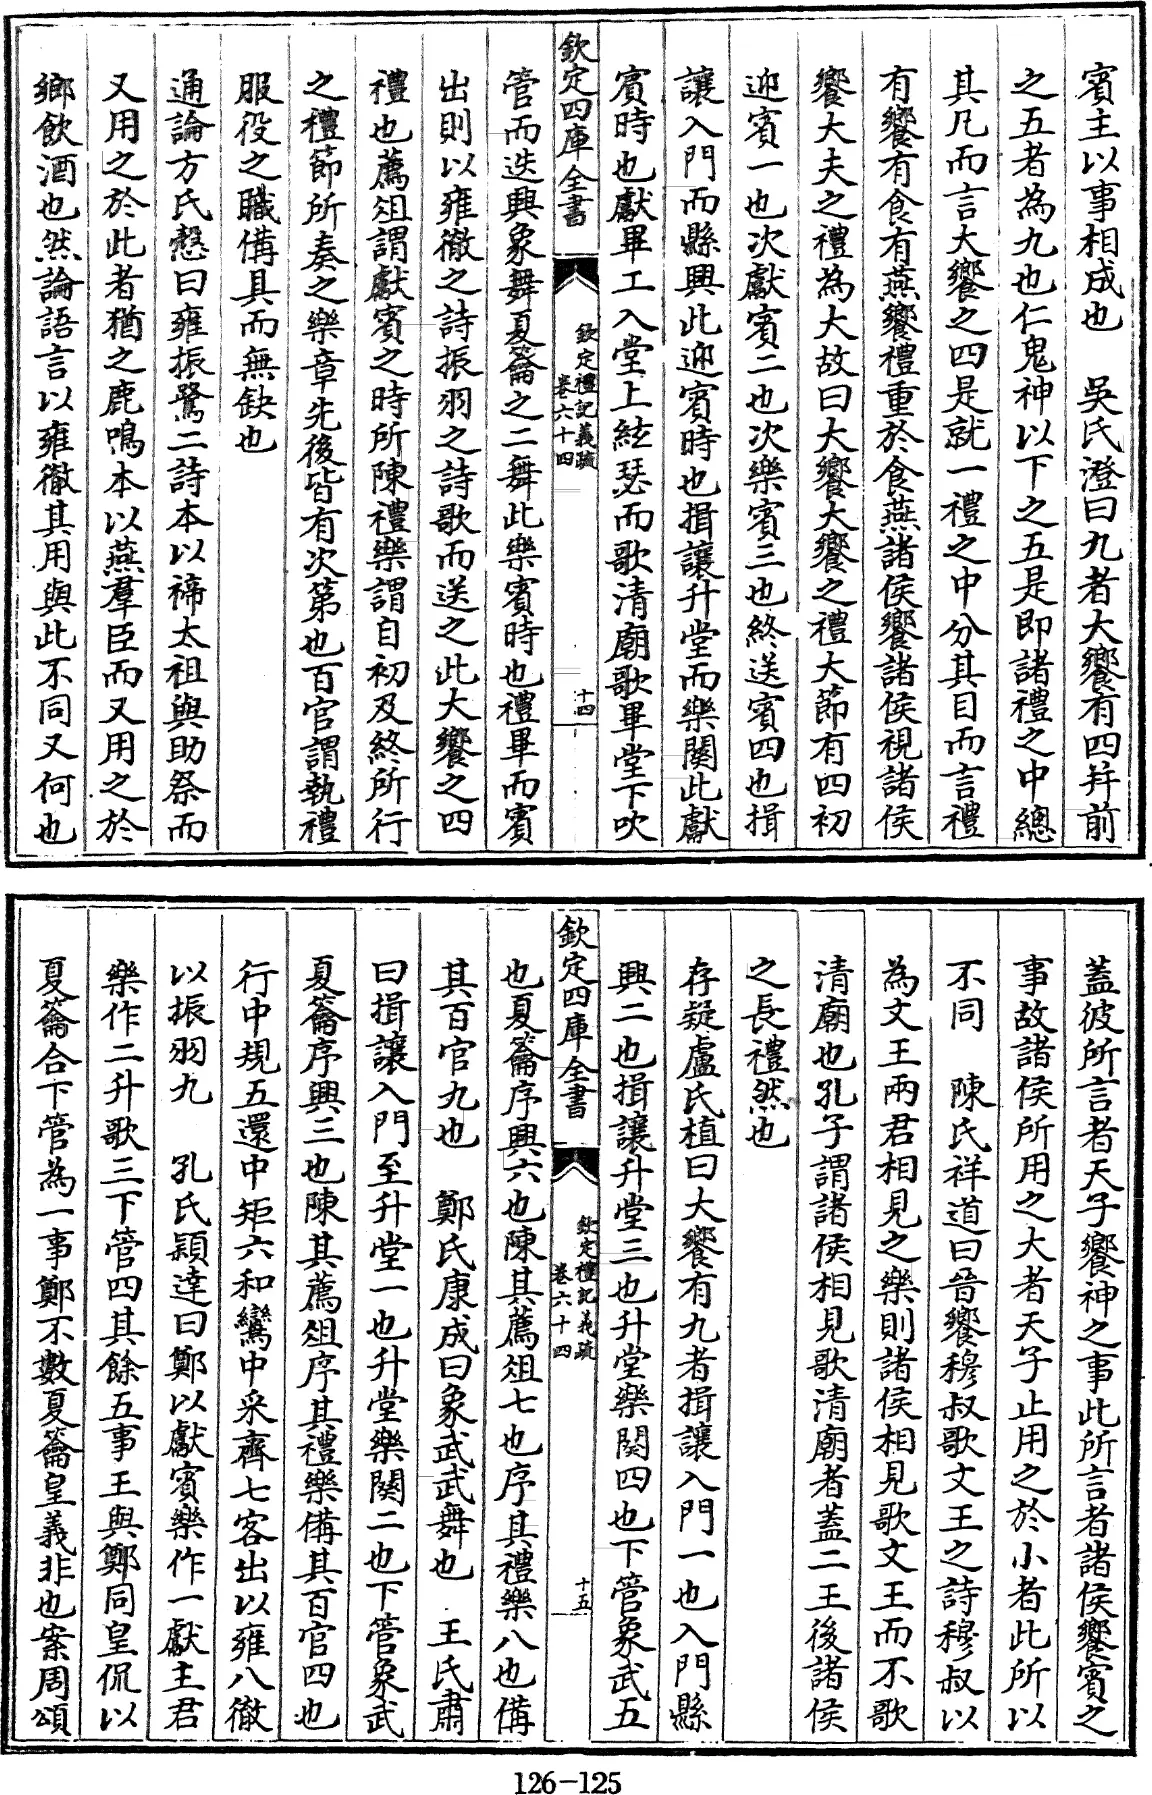 賓主以事相成也　吳氏澄曰九者大饗有四并前
之五者為九也仁鬼神以下之五是即諸禮之中總
其凡而言大饗之四是就一禮之中分其目而言禮
有饗有食有燕饗禮重於食燕諸侯饗諸侯視諸侯
饗大夫之禮為大故曰大饗大饗之禮大節有四初
迎賓一也次獻賓二也次樂賓三也終送賓四也揖
讓入門而縣興此迎賓時也揖讓升堂而樂闋此獻
賓時也獻畢工入堂上絃瑟而歌清廟歌畢堂下吹
欽定四庫全書
欽定禮記義疏
卷六十四
十四
管而迭興象舞夏籥之二舞此樂賓時也禮畢而賓
出則以雍徹之詩振羽之詩歌而送之此大饗之四
禮也薦俎謂獻賓之時所陳禮樂謂自初及終所行
之禮節所奏之樂章先後皆有次第也百官謂執禮
服役之職備具而無缺也
通論方氏慤曰雍振鷺二詩本以禘太祖與助祭而
又用之於此者猶之鹿鳴本以燕羣臣而又用之於
鄉飲酒也然論語言以雍徹其用與此不同又何也
蓋彼所言者天子饗神之事此所言者諸侯饗賓之
事故諸侯所用之大者天子止用之於小者此所以
不同　陳氏祥道曰晉饗穆叔歌文王之詩穆叔以
為文王兩君相見之樂則諸侯相見歌文王而不歌
清廟也孔子謂諸侯相見歌清廟者蓋二王後諸侯
之長禮然也
存疑盧氏植曰大饗有九者揖讓入門一也入門縣
興二也揖讓升堂三也升堂樂闋四也下管象武五
欽定四庫全書
欽定禮記義疏
卷六十四
十五
也夏籥序興六也陳其薦俎七也序其禮樂八也備
其百官九也　鄭氏康成曰象武武舞也　王氏肅
曰揖讓入門至升堂一也升堂樂闋二也下管象武
夏籥序興三也陳其薦俎序其禮樂備其百官四也
行中規五還中矩六和鸞中采齊七客出以雍八徹
以振羽九　孔氏穎達曰鄭以獻賓樂作一獻主君
樂作二升歌三下管四其餘五事王與鄭同皇侃以
夏籥合下管為一事鄭不數夏籥皇義非也案周頌
126-125